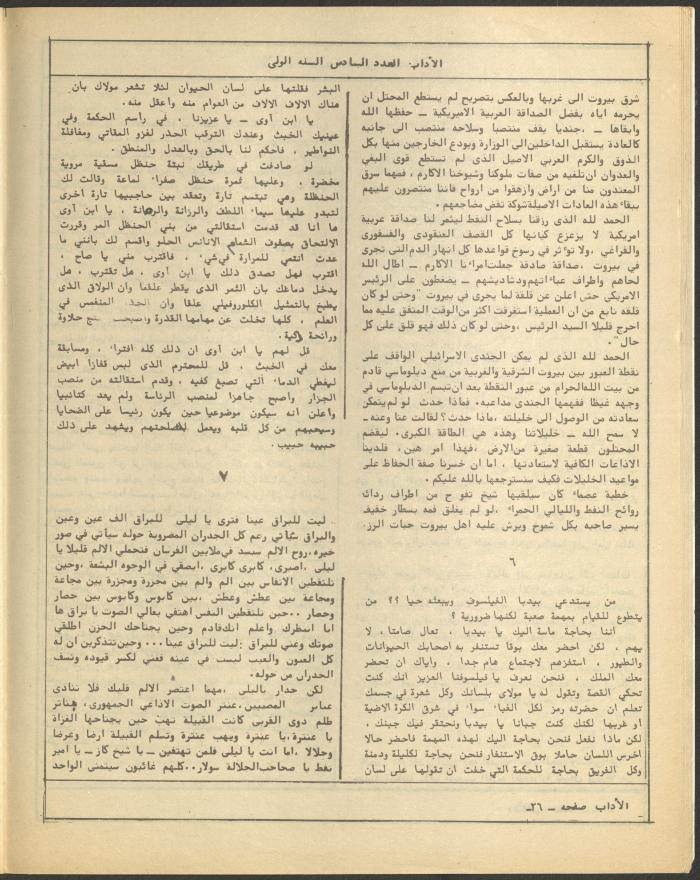 الاداب، العدد السادس السنه الولى
شرق بيروت الى غربها وبالعكس بتصريح لم يستطع المحتل ان
يحرمه اياه بفضل الصداقة العربية الاميريكية ــ حفظها الله
وابقاها ــ ،جنديا يقف منتصبا وسلاحه منتصب الى جانبه
كالعادة يستقبل الداخلين الى الوزارة ويودع الخارجين منها بكل
الذوق والكرم العربي الاصيل الذى لم تستطع قوى البغي
والعدوان ان تلغيه من صفات ملوكنا وشيوخنا الاكارم ، فمهما سرق
المعتدون منا من اراض وازهقوا من ارواح فاننا منتصرون عليهم
ببقاء هذه العادات الاصيلة شوكة تقض مضاجعهم .
الحمد لله الذى رزقنا بسلاح النفط ليثمر لنا صداقة عربية
امريكية لا يزعزع كيانها كل القصف العنقودى والفسفورى
والفراغي ،ولا توءثر في رسوخ قواعدها كل انهار الدم التى تجرى
في بيروت ،صداقة صادقة جعلت امراءنا الاكارم ــ اطال الله
لحاهم واطراف عباءاتهم ودشاديشهم ــ يضغطون على الرئيس
الامريكي حتى اعلن عن قلقه لما يجرى في بيروت "وحتى لو كان
قلقه نابع من ان العملية استغرقت اكثر من الوقت المتفق عليه مما
احرج قليلا السيد الرئيس ،وحتى لو كان ذلك فهو قلق على كل
حال" .
الحمد لله الذى لم يمكن الجندى الاسرائيلي الواقف على
نقطة العبور بين بيروت الشرقية والغربية من منع دبلوماسي قادم
من بيت الله الحرام من عبور النقطة بعد ان تبسم الدبلوماسي في
وجهه غيظا ففهمها الجندى مداعبه، فماذا حدث لو لم يتمكن
سعادته من الوصول الى خليلته ،ماذا حدث؟ لقالت عنا وعنه ــ
لا سمح الله ــ خليلاتنا وهذه هي الطاقة الكبرى، ليقضم
المحتلون قطعة صغيرة من الارض ،فهذا امر هين ، فلدينا
الاذاعات الكافية لاستعادتها ، اما ان خسرنا صفة الحفاظ على
مواعيد الخليلات فكيف سنسترجعها بالله عليكم .
خطبة عصماء كان سيلقيها شيخ تفوح من اطراف ردائه
روائح النفط والليالي الحمراء ،لو لم يغلق فمه بسطار خفيف
يسير صاحبه بكل شموخ ويرش عليه اهل بيروت حبات الرز.
٦
من يستدعي بيدبا الفيلسوف ويبعثه حيا ؟؟ من
يتطوع للقيام بمهمة صعبة لكنها ضرورية ؟
اننا بحاجة ماسة اليك يا بيدبا ، تعال صامتا ، لا
يهم ، لكن احضر معك بوقا تستنفر به اصحابك الحيوانات
والطيور ، استفزهم لاجتماع هام جدا ، واياك ان تحضر
معك الملك ، فنحن نعرف يا فيلسوفنا العزيز انك كنت
تحكي القصة وتقول له يا مولاى بلسانك وكل شعرة في جسمك
تعلم ان حضرته رمز لكل الغباء سواء في شرق الكرة الارضية
أو غربها لكنك كنت جبانا يا بيدبا ونحتقر فيك جبنك ،
لكن ماذا نفعل فنحن بحاجة اليك لهذه المهمة فاحضر حالا
اخرس اللسان حاملا بوق الاستنفار فنحن بحاجة لكليلة ودمنة
وكل الفريق بحاجة للحكمة التي خفت ان تقولها على لسان
البشر فقلتها على لسان الحيوان لئلا تشعر مولاك بان
هناك الالاف الالاف من العوام منه وأعقل منه.
يا ابن آوى ــ يا عزيزنا ، في رأسم الحكمة وفي
عينيك الخبث وعندك الترقب الحذر لغزو المقاتي ومغافلة
النواطير ، فاحكم لنا بالحق وبالعدل والمنطق .
لو صادفت في طريقك نبتة حنظل مسقية مروية
مخضرة ، وعليها ثمرة حنظل صفراء لماعة وقالت لك
الحنظلة وهي تبتسم تارة وتعقد بين حاجبيها تارة أخرى
لتبدو عليها سيماء اللطف والرزانة والرصانة ، يا ابن آوى
ها أنا قد قدمت استقالتي من بني الحنظل المر وقررت
الالتحاق بصفوف الشمام الانانس الحلو واقسم لك بانني ما
عدت انتمي للمرارة في شيء ، فاقترب مني يا صاح ،
اقترب فهل تصدق ذلك يا ابن آوى ، هل تقترب ، هل
يدخل دماغك بان الثمر الذى يقطر علقما وان الولاق الذى
يطبخ بالتمثيل الكلوروفيلي علقا وان الجذر المنغمس في
العلقم ، كلها تخلت عن مهامها القذرة واصبحت تنتج حلاوة
ورائحة زكية.
قل لهم يا ابن آوى ان ذلك كله افتراء ، ومسابقة
معك في الخبث ، قل للمحترم الذى لبس قفازا ابيض
ليغطي الدماء التي تصبغ كفيه ، وقدم استقالته من منصب
الجزار وأصبح جاهزا لمنصب الرئاسة ولم يعد كتائبيا
وأعلن انه سيكون موضوعيا حين يكون رئيسا على الضحايا
وسيحبهم من كل قلبه ويعمل لمصلحتهم ويشهد على ذلك
حبيبه حبيب .
٧
ليت للبراق عينا فترى يا ليلى للبراق الف عين وعين
والبراق سيأتي رغم كل الجدران المضروبة حوله سيأتي في صور
خيره،روح الالم سيسد في ملايين الفرسان فتحملي الالم قليلا يا
ليلى ،اصبرى، كابرى كابرى ،ابصقي في الوجوه البشعة ،وحين
تلتقطين الانفاس بين الم والم بين مجزرة ومجزرة بين مجاعة
ومجاعة بين عطش وعطش ،بين كابوس وكابوس بين حصار
وحصار ..حين تلتقطين النفس اهتفي بعالي الصوت يا براق ها
انا انتظرك واعلم انك قادم وحين يجتاحك الحزن اطلقي
صوتك وغني للبراق :ليت للبراق عينا...وحين تتذكرين ان له
كل العيون والعيب ليست في عينه فغني لكسر قيوده ونسف
الجدران من حوله.
لكن حذار ياليلى ،مهما اعتصر الالم قلبك فلا تنادى
عنابر المصيبين،عنبر الصوت الاذاعي الجمهورى، هناتر
ظلم ذوى القربى كانت القبيلة تهب حين يجتاحها الغزاة
يا عنترة،يا عنترة ويهب عنترة وتسلم القبيلة ارضا وعرضا
وحلالا ،اما انت يا ليلى فلمن تهتفين ــ يا شيخ كاز ــ يا امير
نفط يا صاحب الجلالة سولار..كلهم غائبون سيتمنى الواحد
الآداب صفحه ــ ٢٦ـ